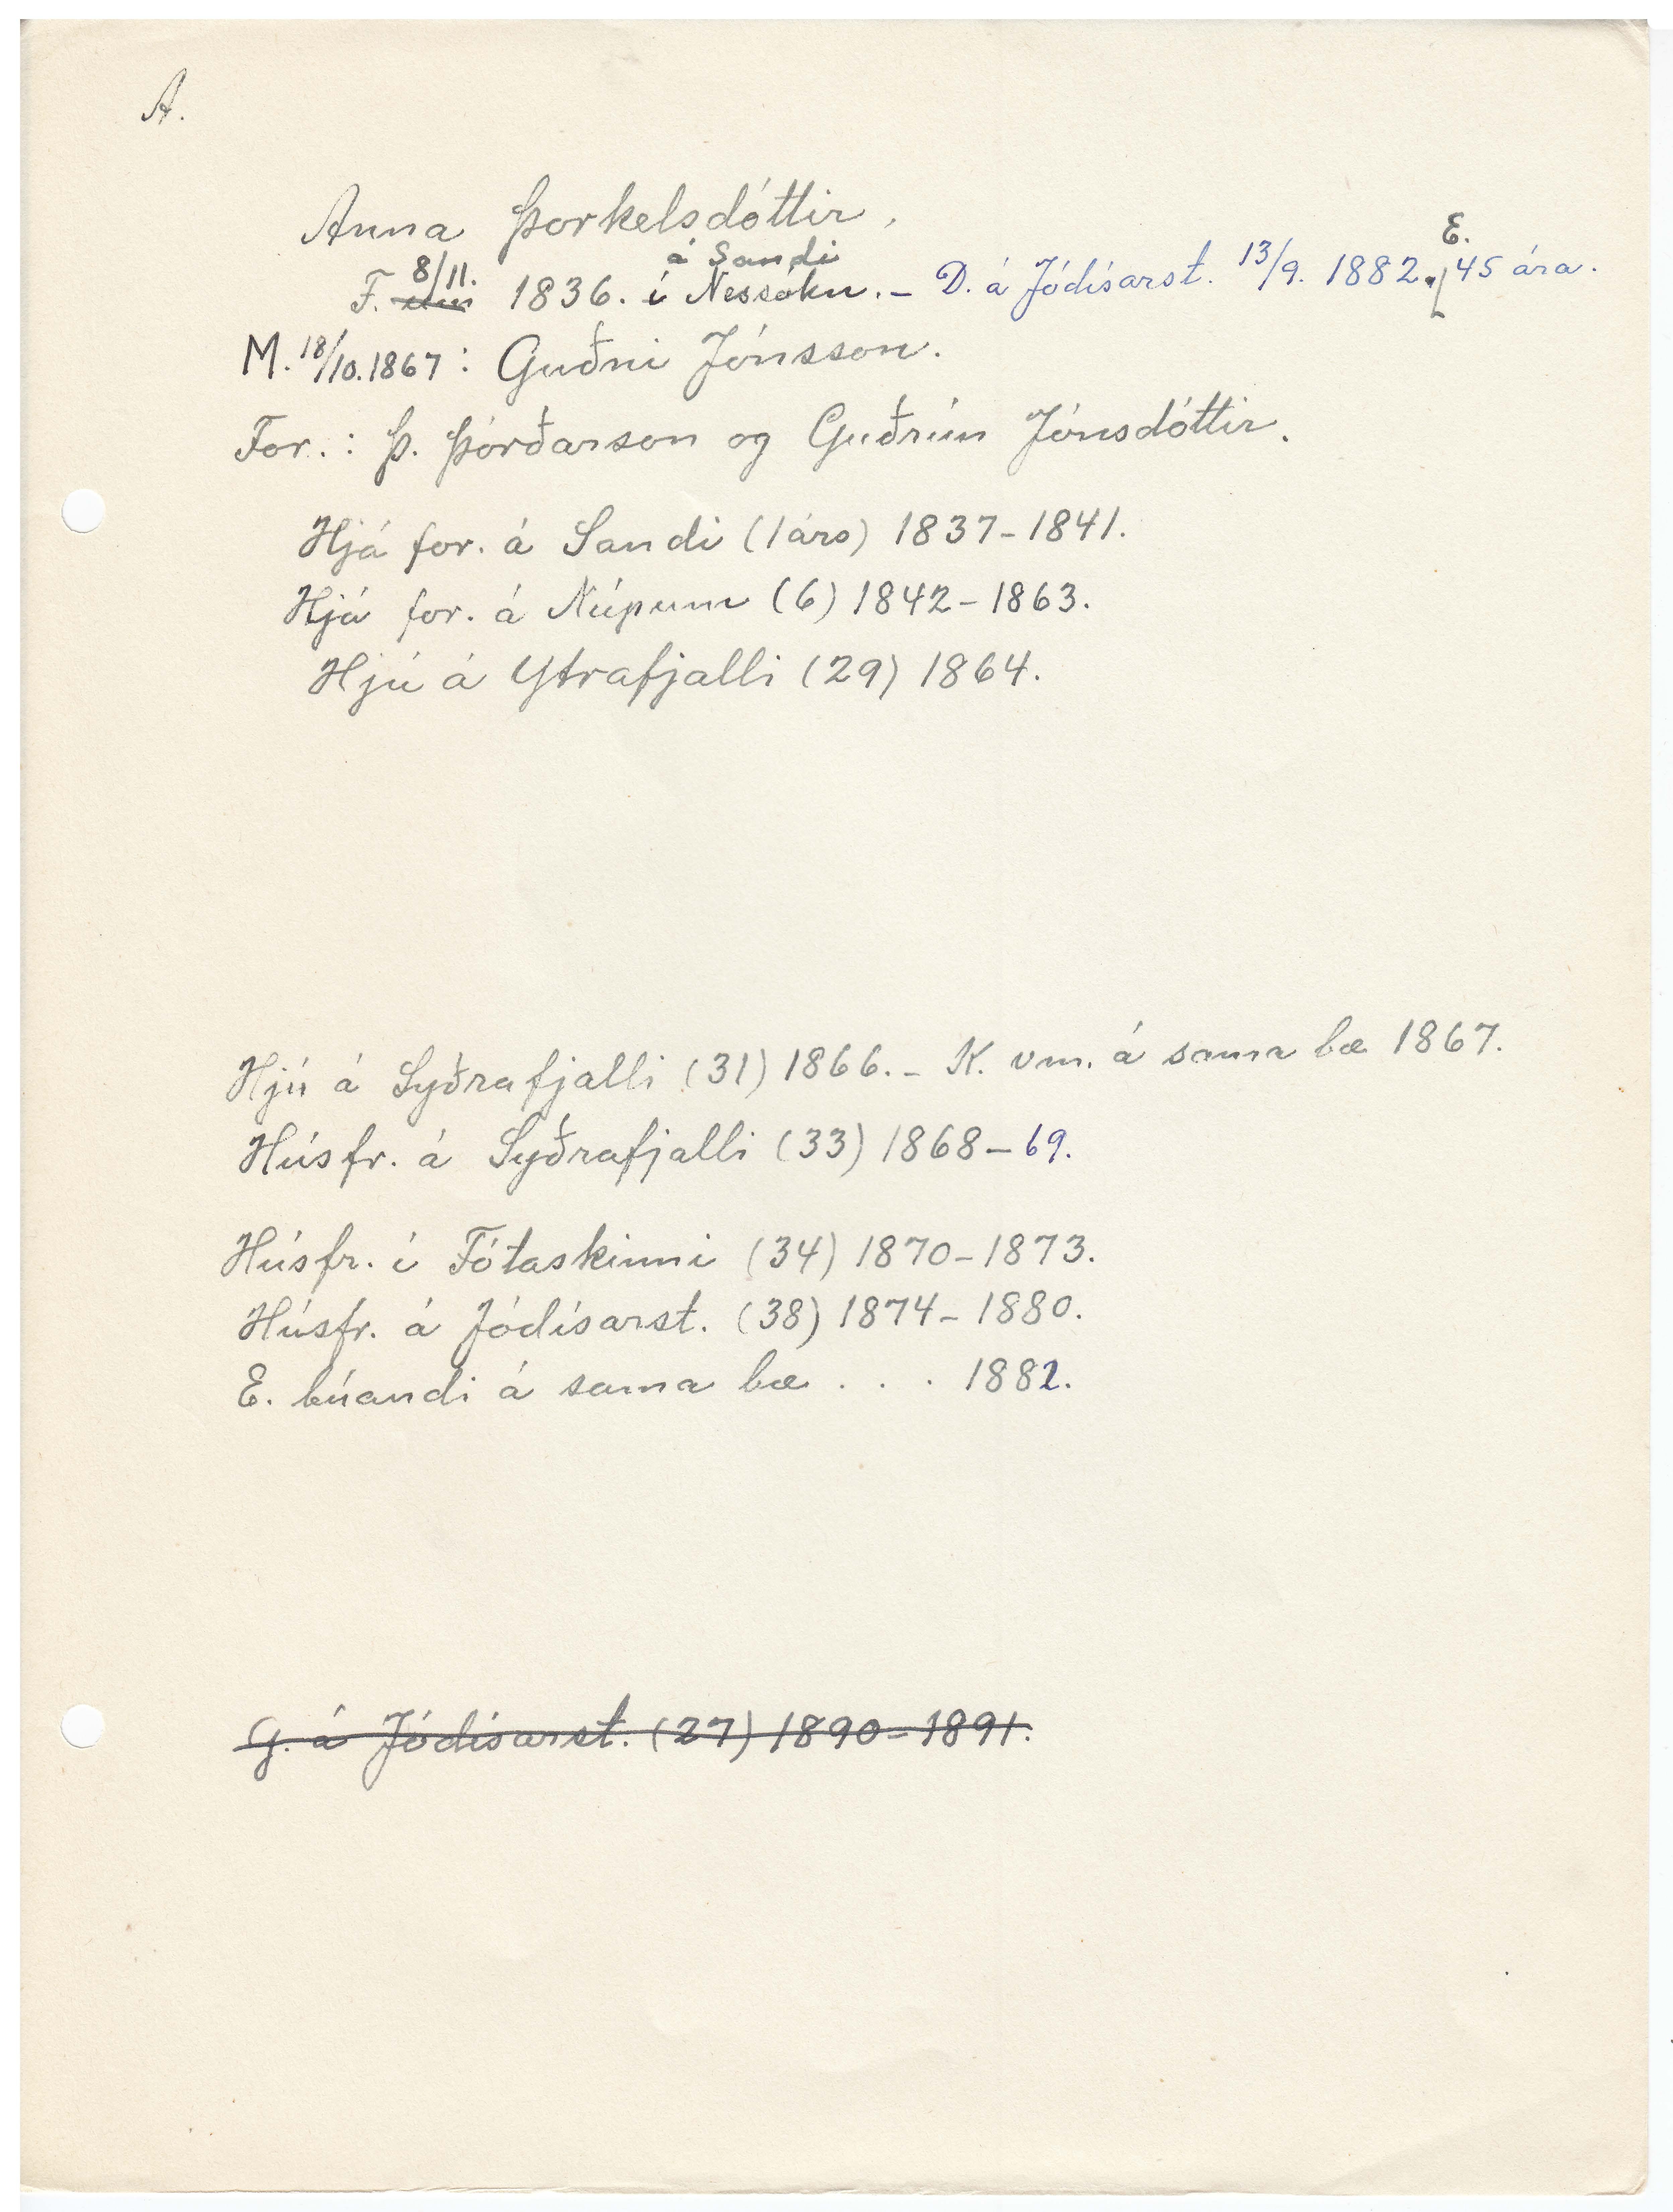 A.
Anna Þorkelsdóttir.
F. 8/11. 1836. á Sandi í Nessókn. – D. á Jódísarst. 13/9. 1882. E. 45 ára.
M. 18/10. 1867: Guðni Jónsson.
For.: Þ. Þórðarson og Guðrún Jónsdóttir.
Hjá for. á Sandi (1 árs) 1837-1841.
Hjá for. á Núpum (6) 1842-1863.
Hjú á Ytrafjalli (29) 1864.
Hjú á Syðrafjalli (31) 1866. – K. vm. á sama bæ 1867.
Húsfr. á Syðrafjalli (33) 1868-69.
Húsfr. í Fótaskinni (34) 1870-1873.
Húsfr. á Jódísarst. (38) 1874-1880.
E. búandi á sama bæ . . . 1882.
G. á Jódísarst. (27) 1890-1891.